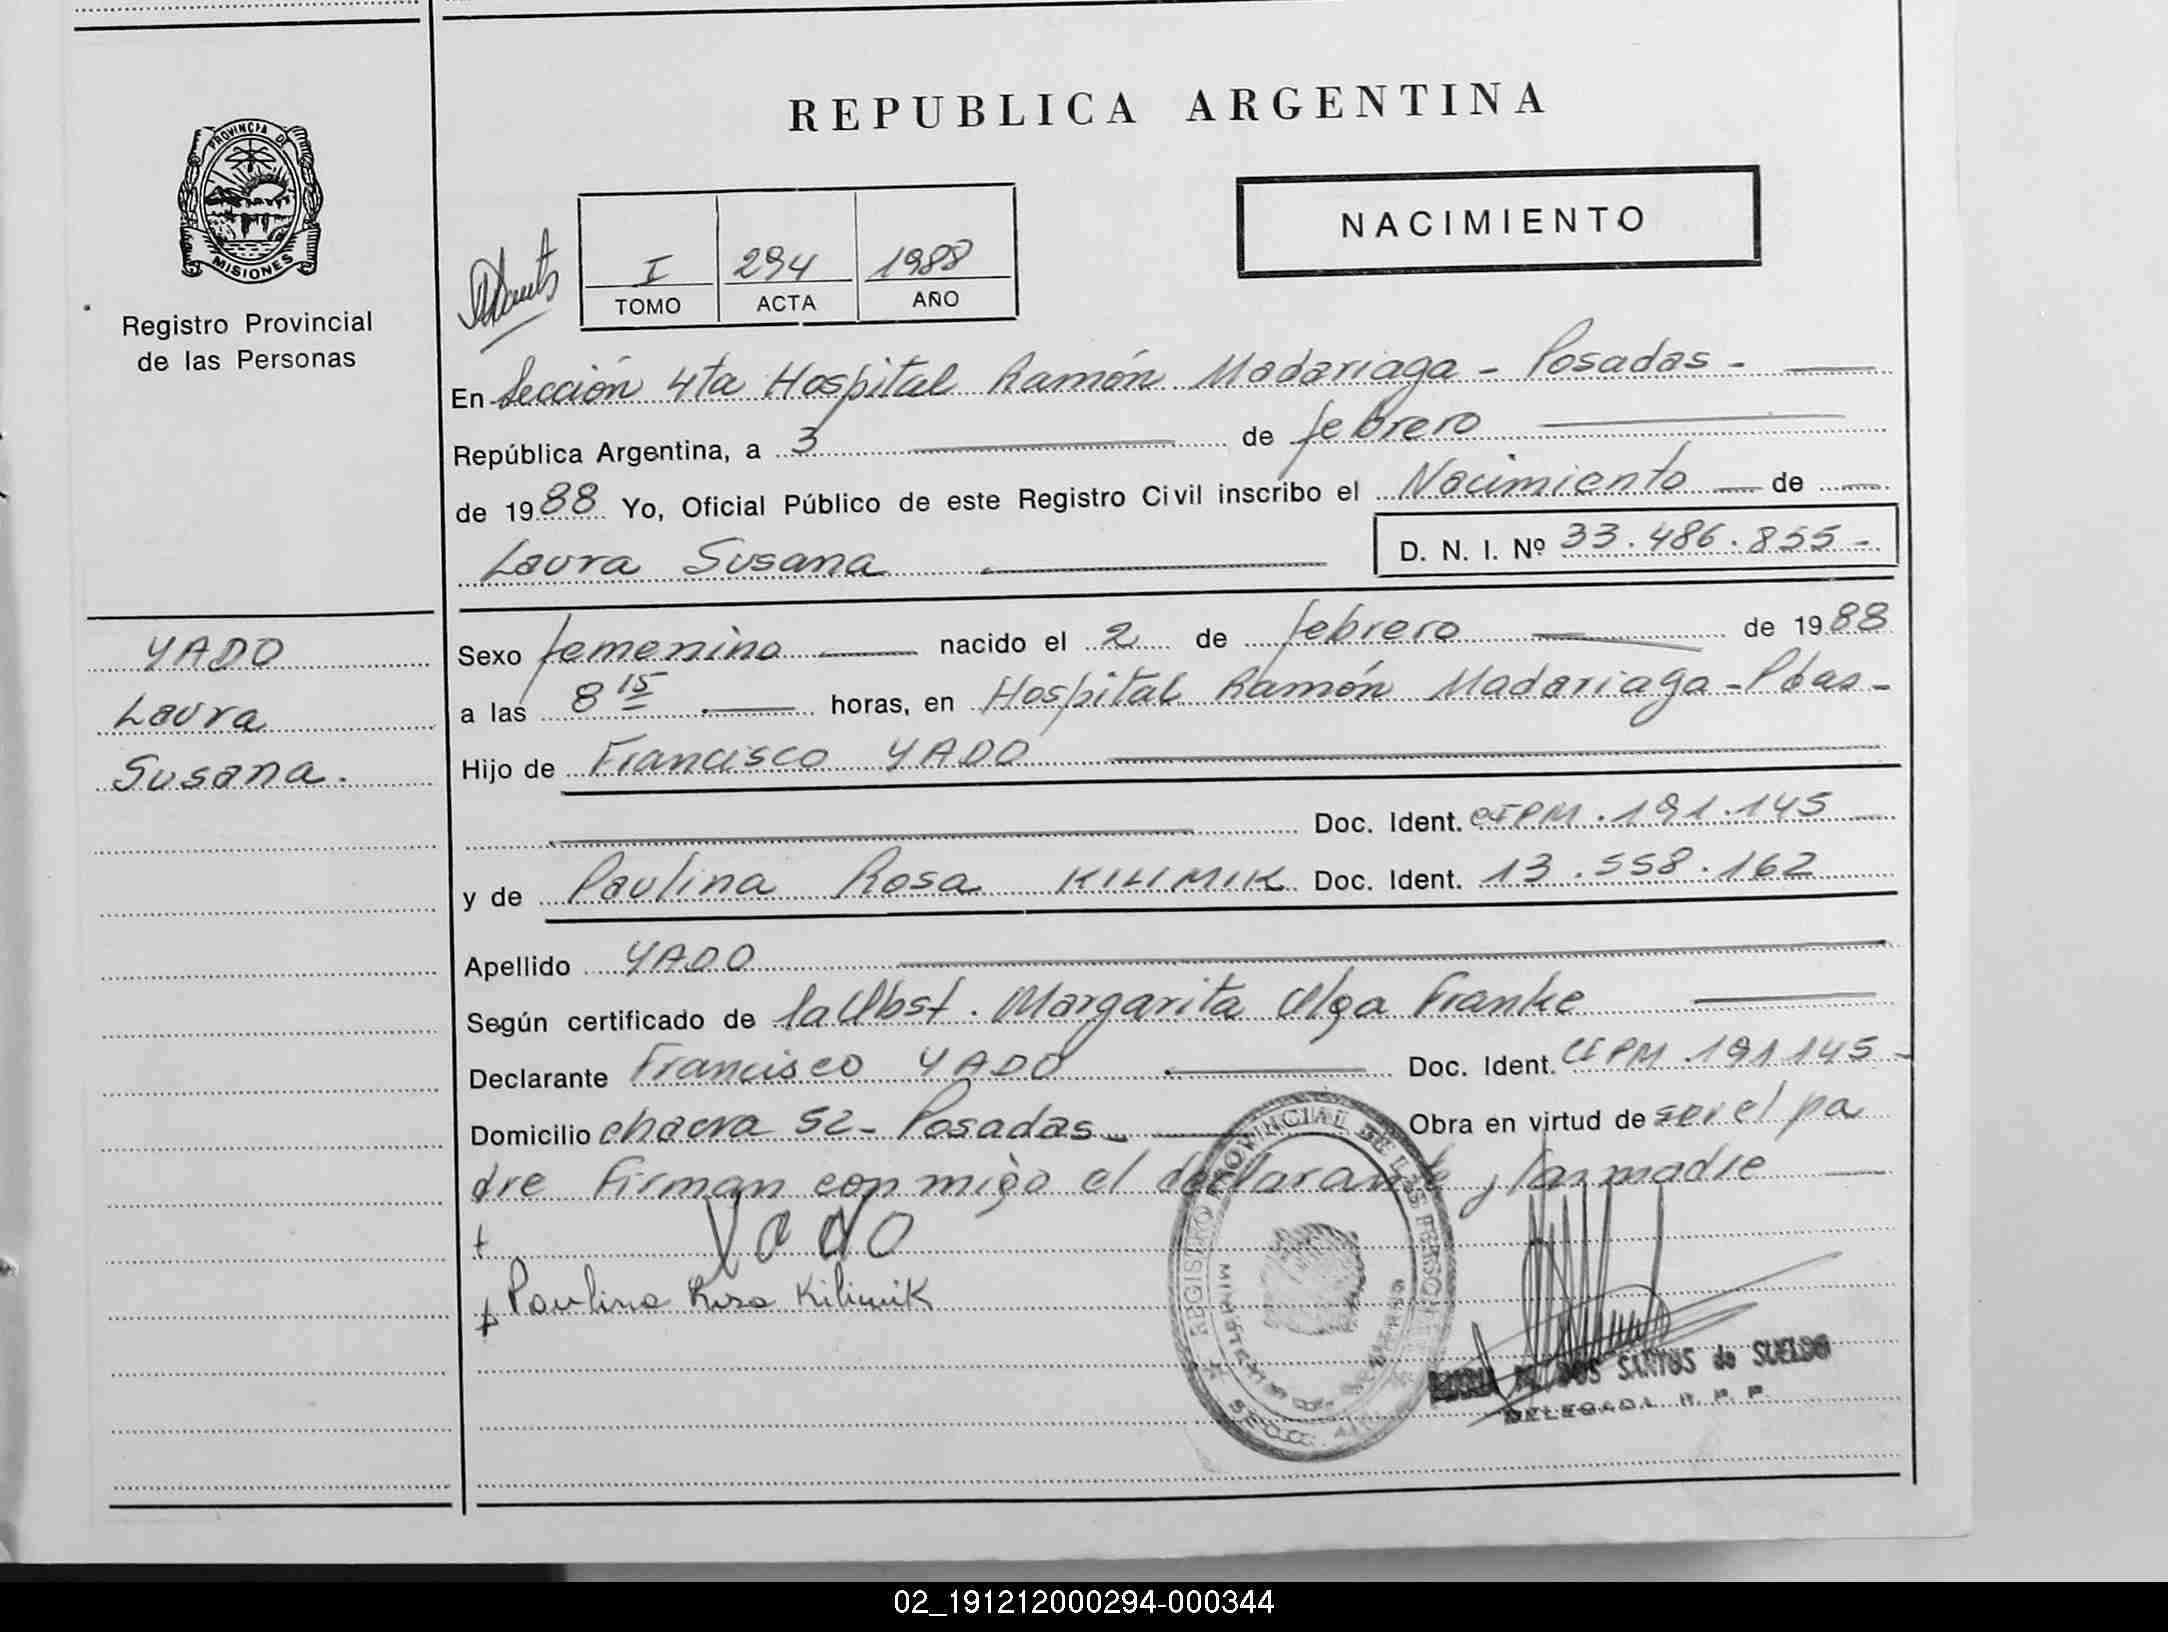 REPUBLICA ARGENTINA
PROVINCIA DE
MISIONES
Registro Provincial
de las Personas
NACIMIENTO
I 294 1988
TOMO ACTA AÑO
En Sección 4ta Hospital Ramón Madariaga - Posadas -
República Argentina, a 3 de febrero
de 1988 Yo, Oficial Público de este Registro Civil inscribo el Nacimiento de
Laura Susana D. N. I. Nº 33.486.855-
YADO
Laura
Susana.
Sexo femenino nacido el 2 de febrero de 1988
a las 8 15 horas, en Hospital Ramón Madariaga - Pdas -
Hijo de Francisco YADO
Doc. Ident. CIPM. 191.145
y de Paulina Rosa KILIMIK Doc. Ident. 13.558.162
Apellido YADO
Según certificado de la Obst. Margarita Olga Franke
Declarante Francisco YADO Doc. Ident. CIPM 191145-
Domicilio chacra 52- Posadas - Obra en virtud de ser el pa
dre Firman conmigo el declarante y la madre
Yado
Paulina Rosa Kilimik
REGISTRO PROVINCIAL DE LAS PERSONAS
DOS SANTOS de SUELDO
DELEGADA R. P. P.
02_191212000294-000344